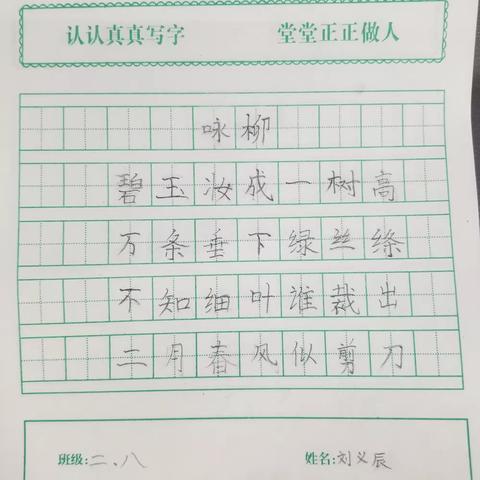 认认真真写字 堂堂正正做人
咏柳
碧玉妆成一树高
万条垂下绿丝绦
不知细叶谁裁出
二月春风似剪刀
班级:二、八 姓名:刘义辰